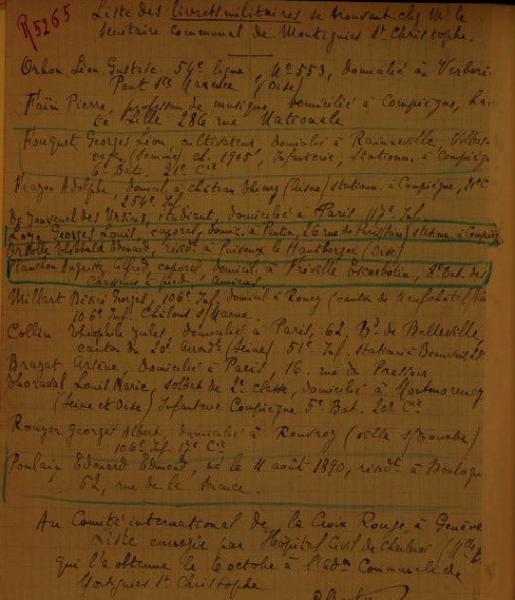 R 5265
Liste des livrets militaires se trouvant chez Mr le
secrétaire communal de Montignies St Christophe.
Orhon Léon Gustave, 54e ligne No 553, domicilié à Verberie
Pont Ste Maxence (Oise)
Faïn Pierre, professeur de musique, domicilié à Compiègne,
Lille 286 rue Nationale
Fouquet Georges Léon cultivateur, domicilié à Rainneville,
(Somme) cl. 1905, Infanterie, stationn. à Compiègne
6e Bat. 21e Cie
Adolphe domicil. à Château Thierry (Aisne) stationn. à Compiègne, 21e C
254e Inf
De Jouvenel des Ursins, étudiant, domicilié à Paris 117e Inf.
Georges Louis, caporal, domic. à Pantin, 26 rue de stationn. à Compiègne
Thibbald Edouard, résidt à Puiseux le Hautberger (Oise)
Alfred, caporal, domicil. à Fréville Escarbotin, 8e Bat. des
chasseurs à pied, Amiens
Millart Désiré Georges, 106e Inf. domicil. à Roucy (canton de Neufchâtel)
106e Inf. Châlons s/Marne
Collin Théophile Jules domicilié à Paris, 62, Bd de Belleville,
canton du 20e Arrondt (Seine) 51e Inf. stationné à Beauvais,
Brazat Arsène, domicilié à Paris, 16. rue du Pressoir
Thoraval Louis Marie, soldat de 2e classe, domicilié à Montmorency
(Seine et Oise) Infanterie Compiègne 5e Bat. 20e Cie
Rouyer Georges Albert, domicilié à Rouvroy (ville s/Tourbe)
106e Inf. 17e Cie
Poulain Edouard Edmond, né le 11 août 1890, résidt à Boulogne
62, rue de la Science.
Au Comité international de la Croix Rouge, à Genève
Liste envoyée par Hôpital Civil de Charleroi
qui l'a obtenue le 6 octobre à l'adon Communale de
Montignies St Christophe